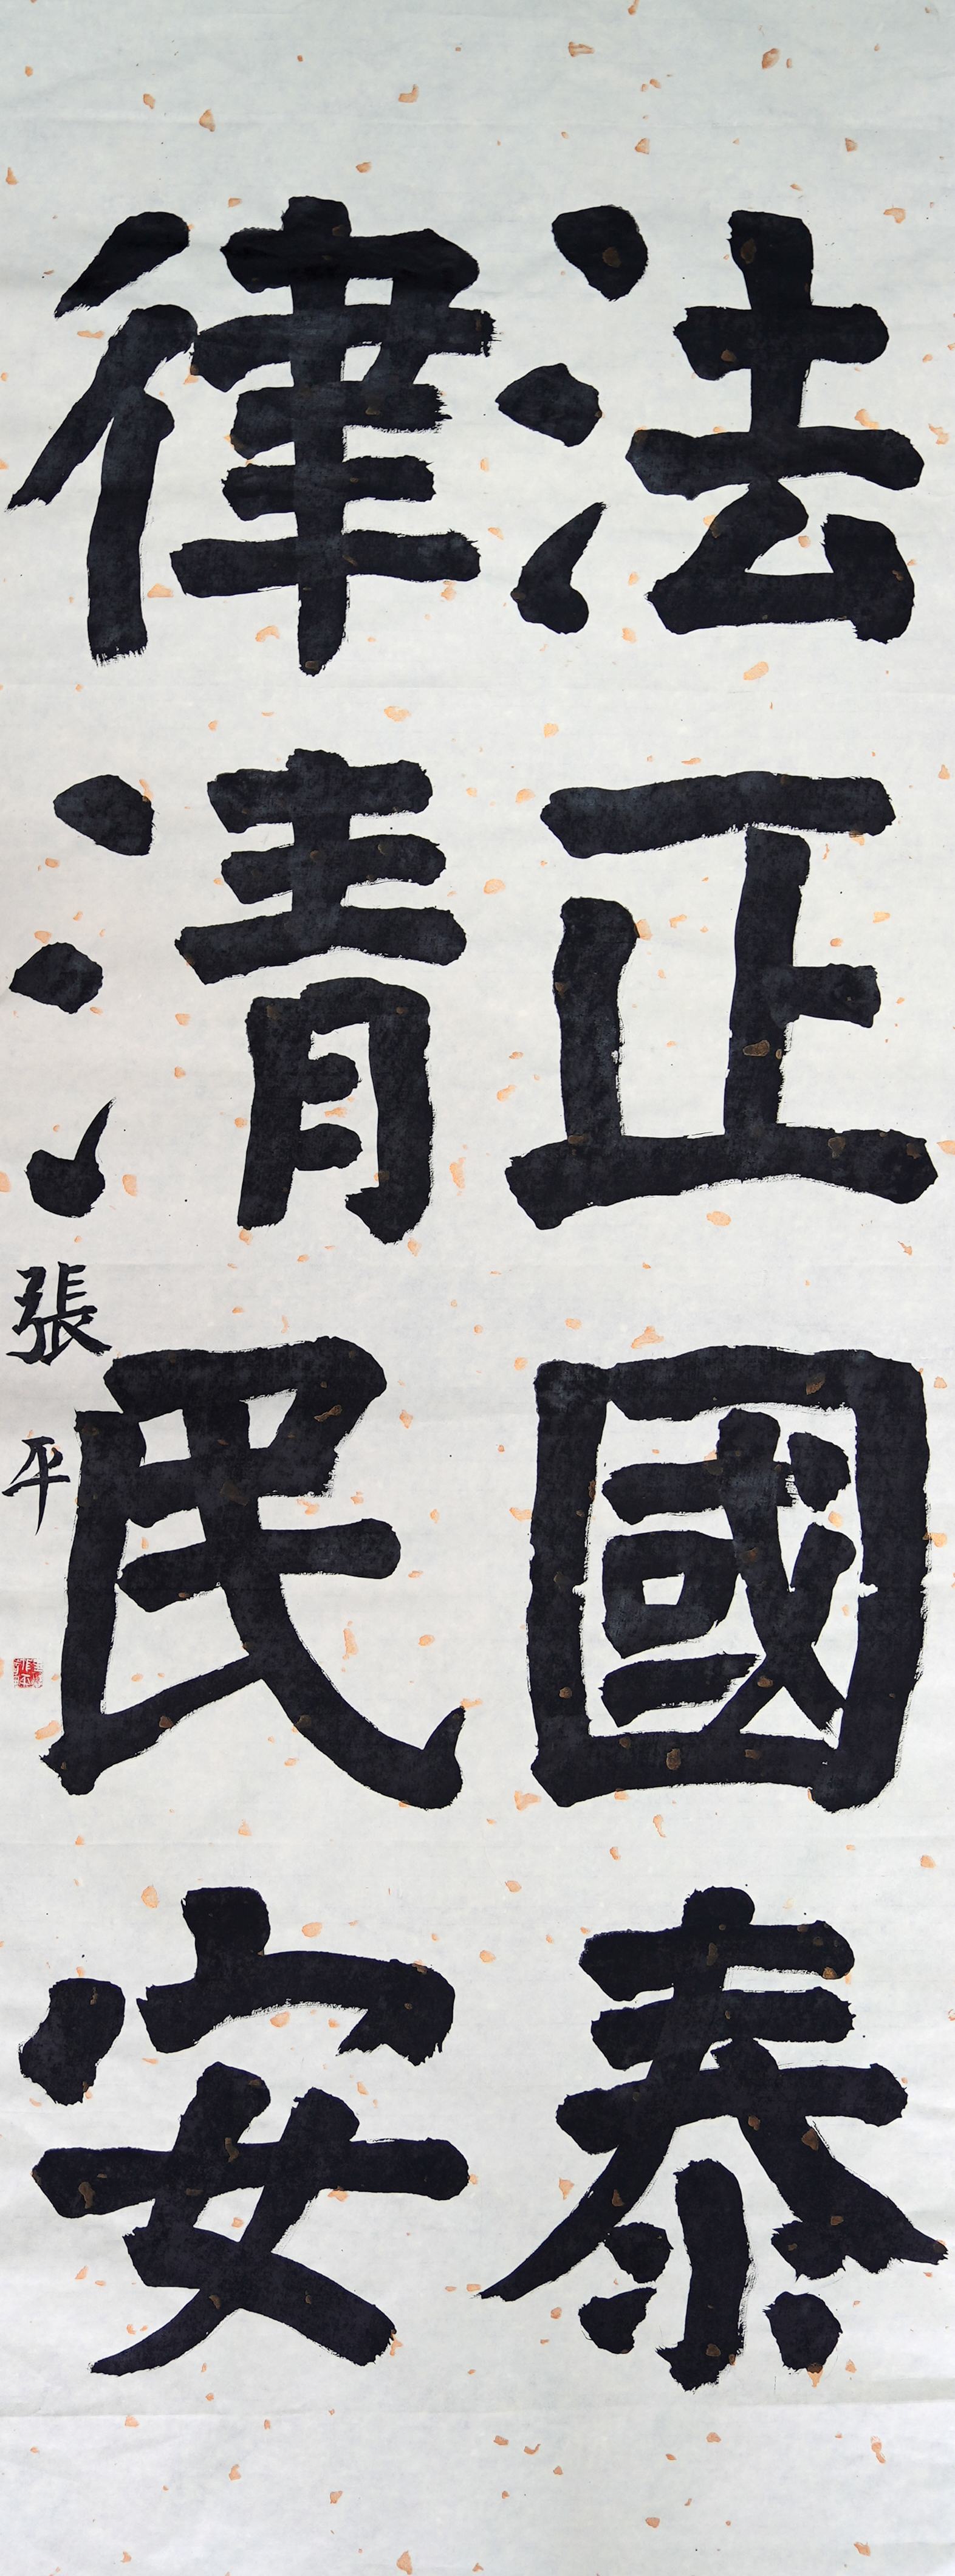 法正國泰
律清民安
張平